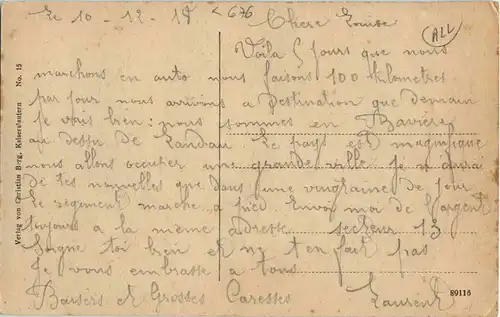 Le 10 - 12 - 18
<676
Chere Louise
ALL
Voila 5 jours que nous
marchons en auto nous faisons 100 kilometres
par jour nous arrivons a Destination que demain
je vous bien : nous sommes en Bavière
au dessu de Landau Le pays est magnifique
nous allons occuper une grande ville je n aurai
de tes nouvelles que dans une vingtaine de jour
Le régiment marche a pied Envoi moi de l argent
toujours a la même adresse secteur 13
Soigne toi bien et ne t en fait pas
Je vous embrasse a tous
Baisers et Grosses Caresses Laurent
Verlag von Christian Berg, Kaiserslautern No. 15
89116